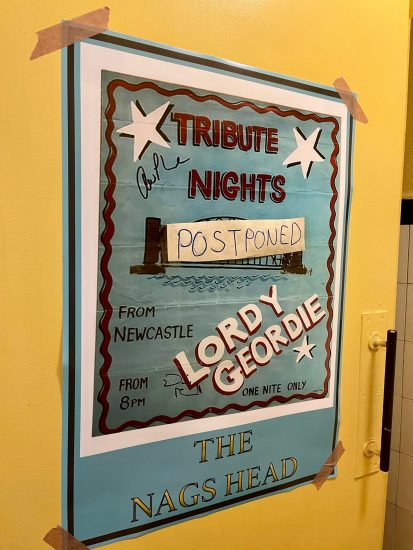 TRIBUTE
NIGHTS
POSTPONED
FROM
NEWCASTLE
LORDY
GEORDIE
FROM
8PM
ONE NITE ONLY
THE
NAGS HEAD